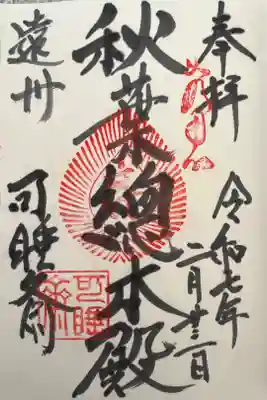 奉拝
令和七年
二月廿三日
秋葉總本殿
遠州
可睡斎
可睡斎